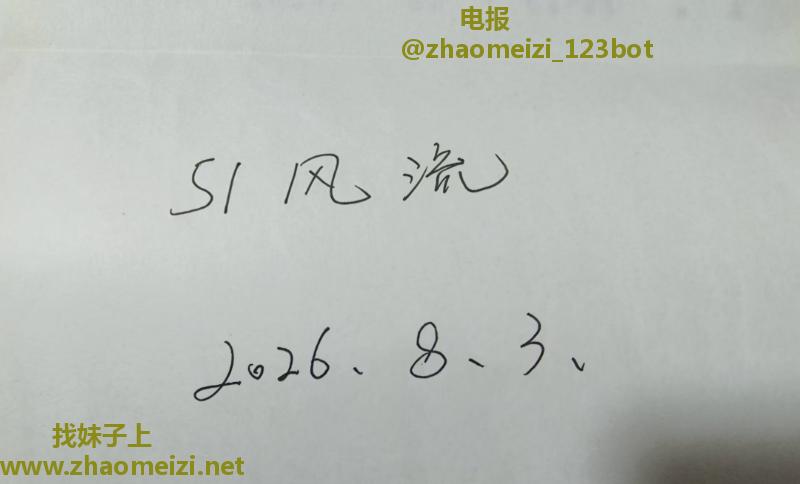 电报
@zhaomeizi_123bot
51风流
2026、8、3、
找妹子上
www.zhaomeizi.net